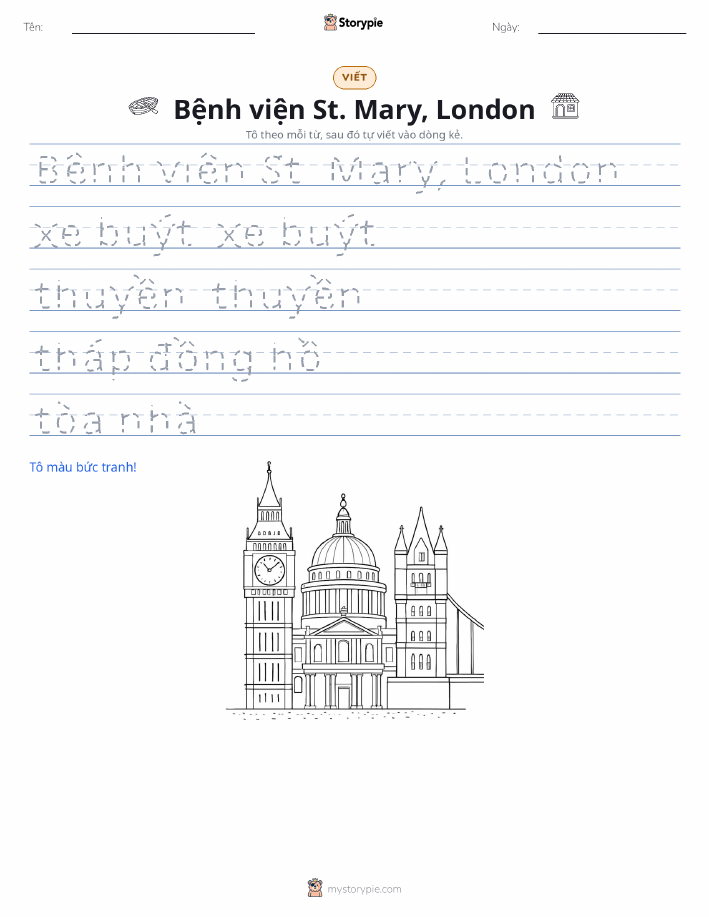 Tên:
Storypie
Ngày:
VIẾT
Bệnh viện St. Mary, London
Tô theo mỗi từ, sau đó tự viết vào dòng kẻ.
Bệnh viện St. Mary, London
xe buýt xe buýt
thuyền thuyền
tháp đồng hồ
tòa nhà
Tô màu bức tranh!
mystorypie.com